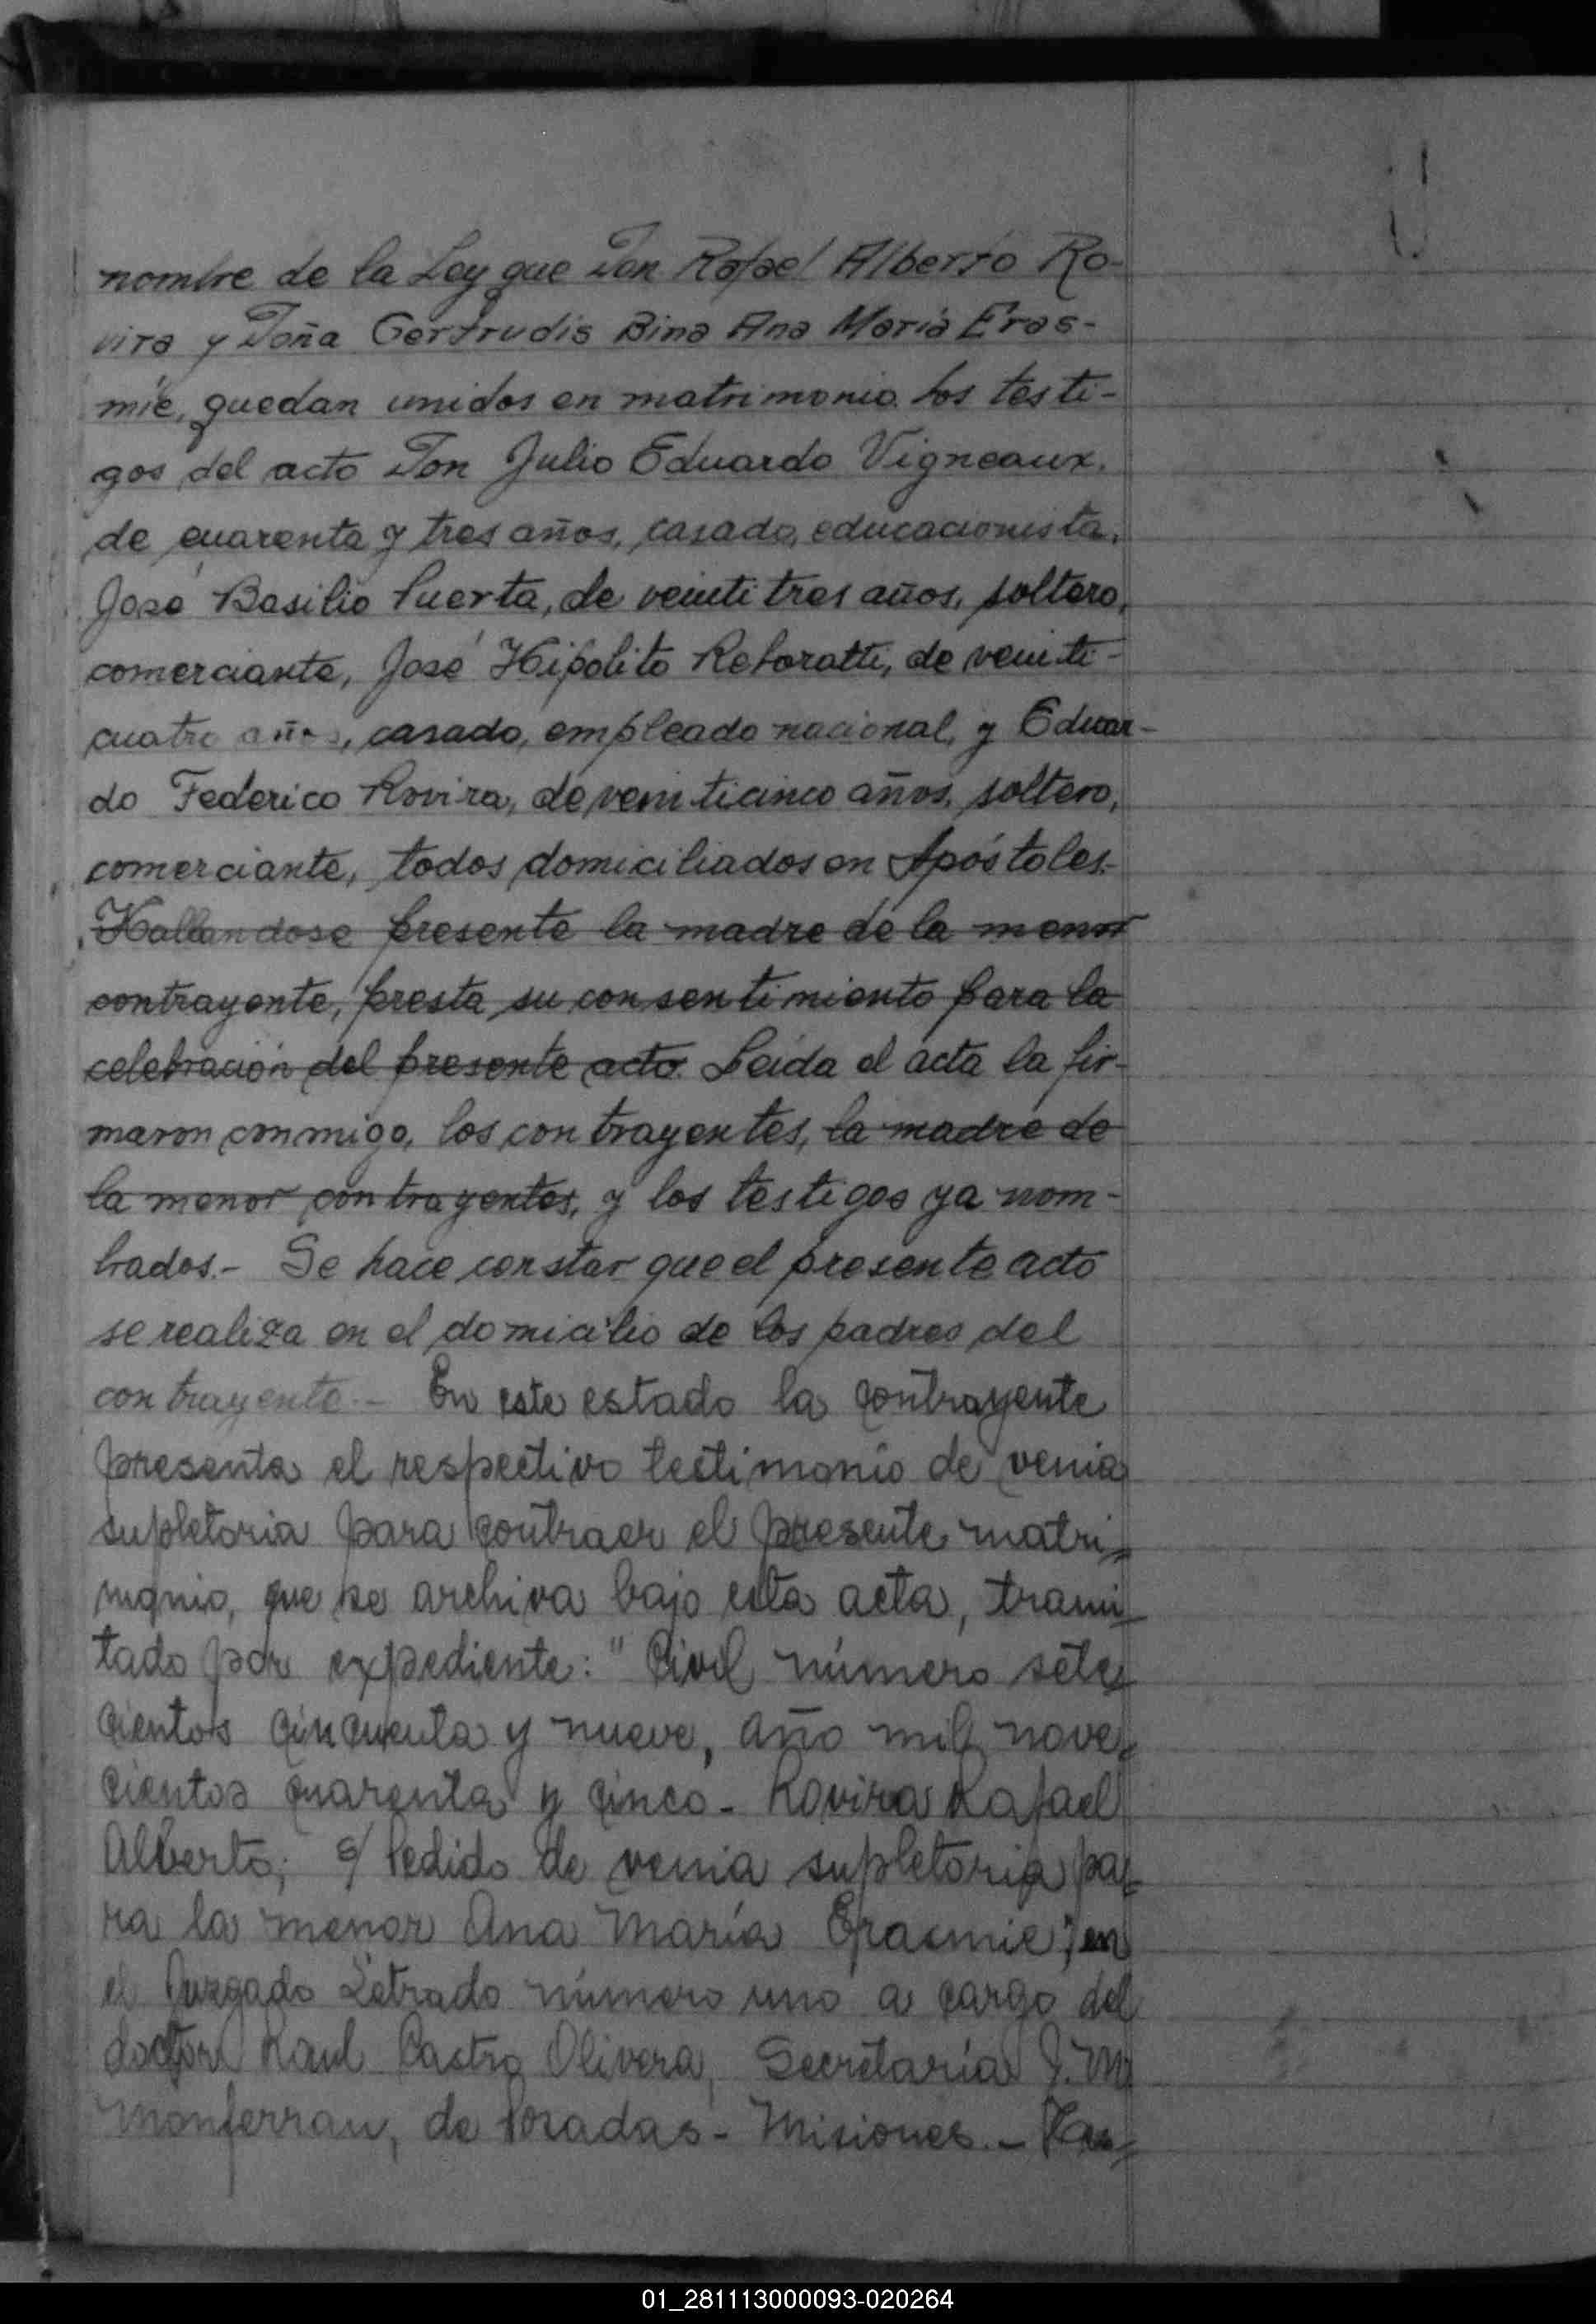 nombre de la Ley que Don Rafael Alberto Ro-
vira y Doña Gertrudis Bina Ana María Eras-
mie, quedan unidos en matrimonio. Los testi-
gos del acto Don Julio Eduardo Vigneaux,
de cuarenta y tres años, casado, educacionista,
José Basilio Puerta, de veinti tres años, soltero,
comerciante, José Hipolito Reboratti, de veinti-
cuatro años, casado, empleado nacional, y Eduar-
do Federico Rovira, de veinticinco años, soltero,
comerciante, todos domiciliados en Apóstoles.
Hallandose presente la madre de la menor
contrayente, presta su consentimiento para la
celebración del presente acto. Leida el acta la fir-
maron conmigo, los contrayentes, la madre de
la menor contrayentes, y los testigos ya nom-
brados.- Se hace constar que el presente acto
se realiza en el domicilio de los padres del
contrayente.- En este estado la contrayente
presenta el respectivo testimonio de venia
supletoria para contraer el presente matri=
monio, que se archiva bajo esta acta, trami=
tado por expediente: "Civil número sete=
cientos cincuenta y nueve, año mil nove=
cientos cuarenta y cinco - Rovira Rafael
Alberto; s/ Pedido de venia supletoria pa=
ra la menor Ana María Erasmie", en
el Juzgado Letrado número uno a cargo del
doctor Raul Castro Olivera, Secretaría J. M.
Monferran, de Posadas - Misiones.-
01_281113000093-020264